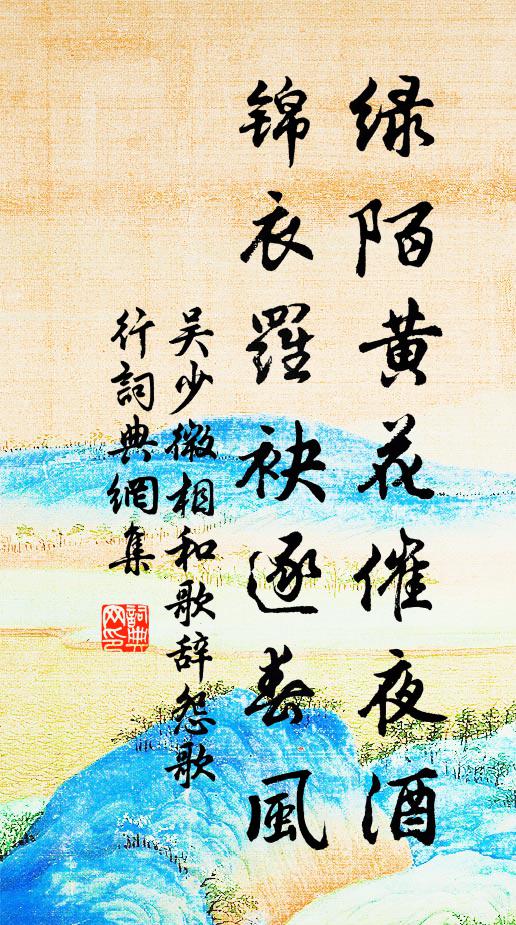 绿陌黄花催夜酒
锦衣羅袂逐春風
吴少微相和歌辞怨歌
行詞典網集
詞典